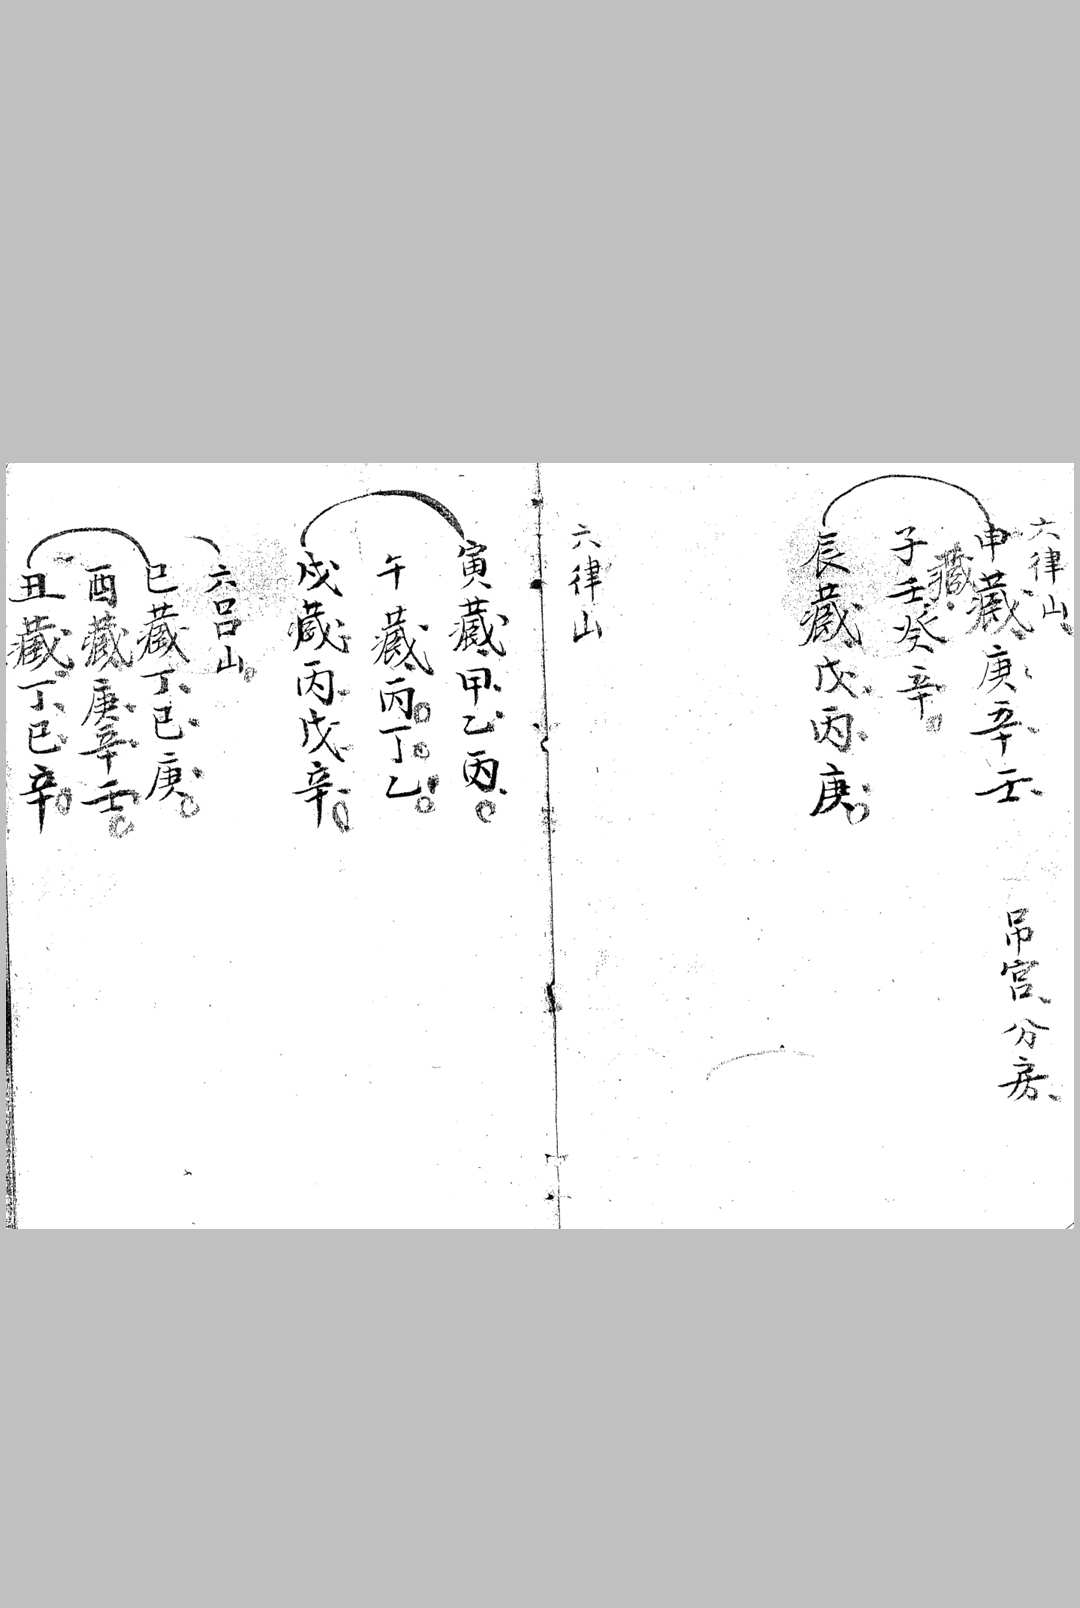 六律山
申藏庚辛壬
吊宮分房
子藏壬癸辛
辰藏戊丙庚
六律山
寅藏甲乙丙
午藏丙丁乙
戌藏丙戊辛
六呂山
巳藏丁己庚
酉藏庚辛壬
丑藏丁己辛